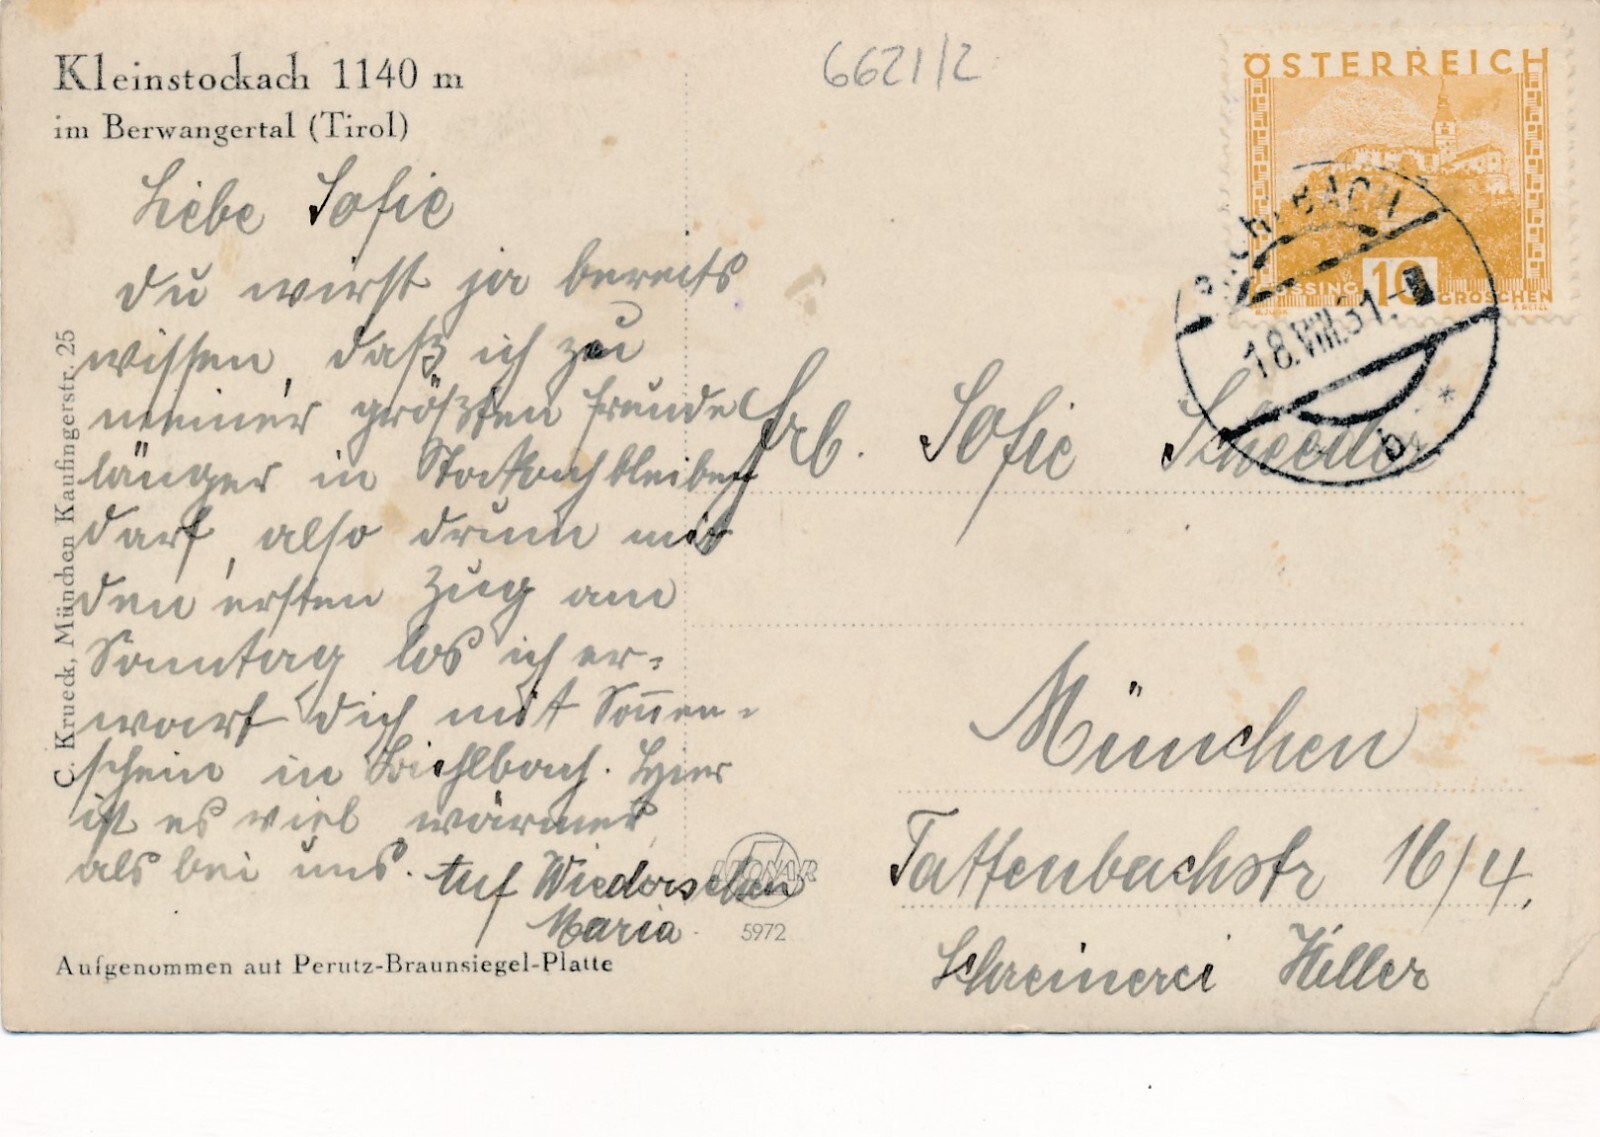 Kleinstockach 1140 m
im Berwangertal (Tirol)
6621/2
ÖSTERREICH
GÜSSING 10 GROSCHEN
BICHLBACH
18.VIII.31.
b
*
Liebe Sofie
Du wirst ja bereits
wissen, daß ich zu
meiner größten Freude
länger in Stockach bleiben
darf, also drum mit
den ersten Zug am
Sonntag los ich er=
wart Dich mit Sonnen=
schein in Bichlbach. Hier
ist es viel wärmer
als bei uns. Auf Wiedersehen
Maria
Frl. Sofie
München
Tattenbachstr 16/4,
Schreinerei Hiller
C. Krueck, München Kaufingerstr. 25
LEONAR
5972
Aufgenommen auf Perutz-Braunsiegel-Platte